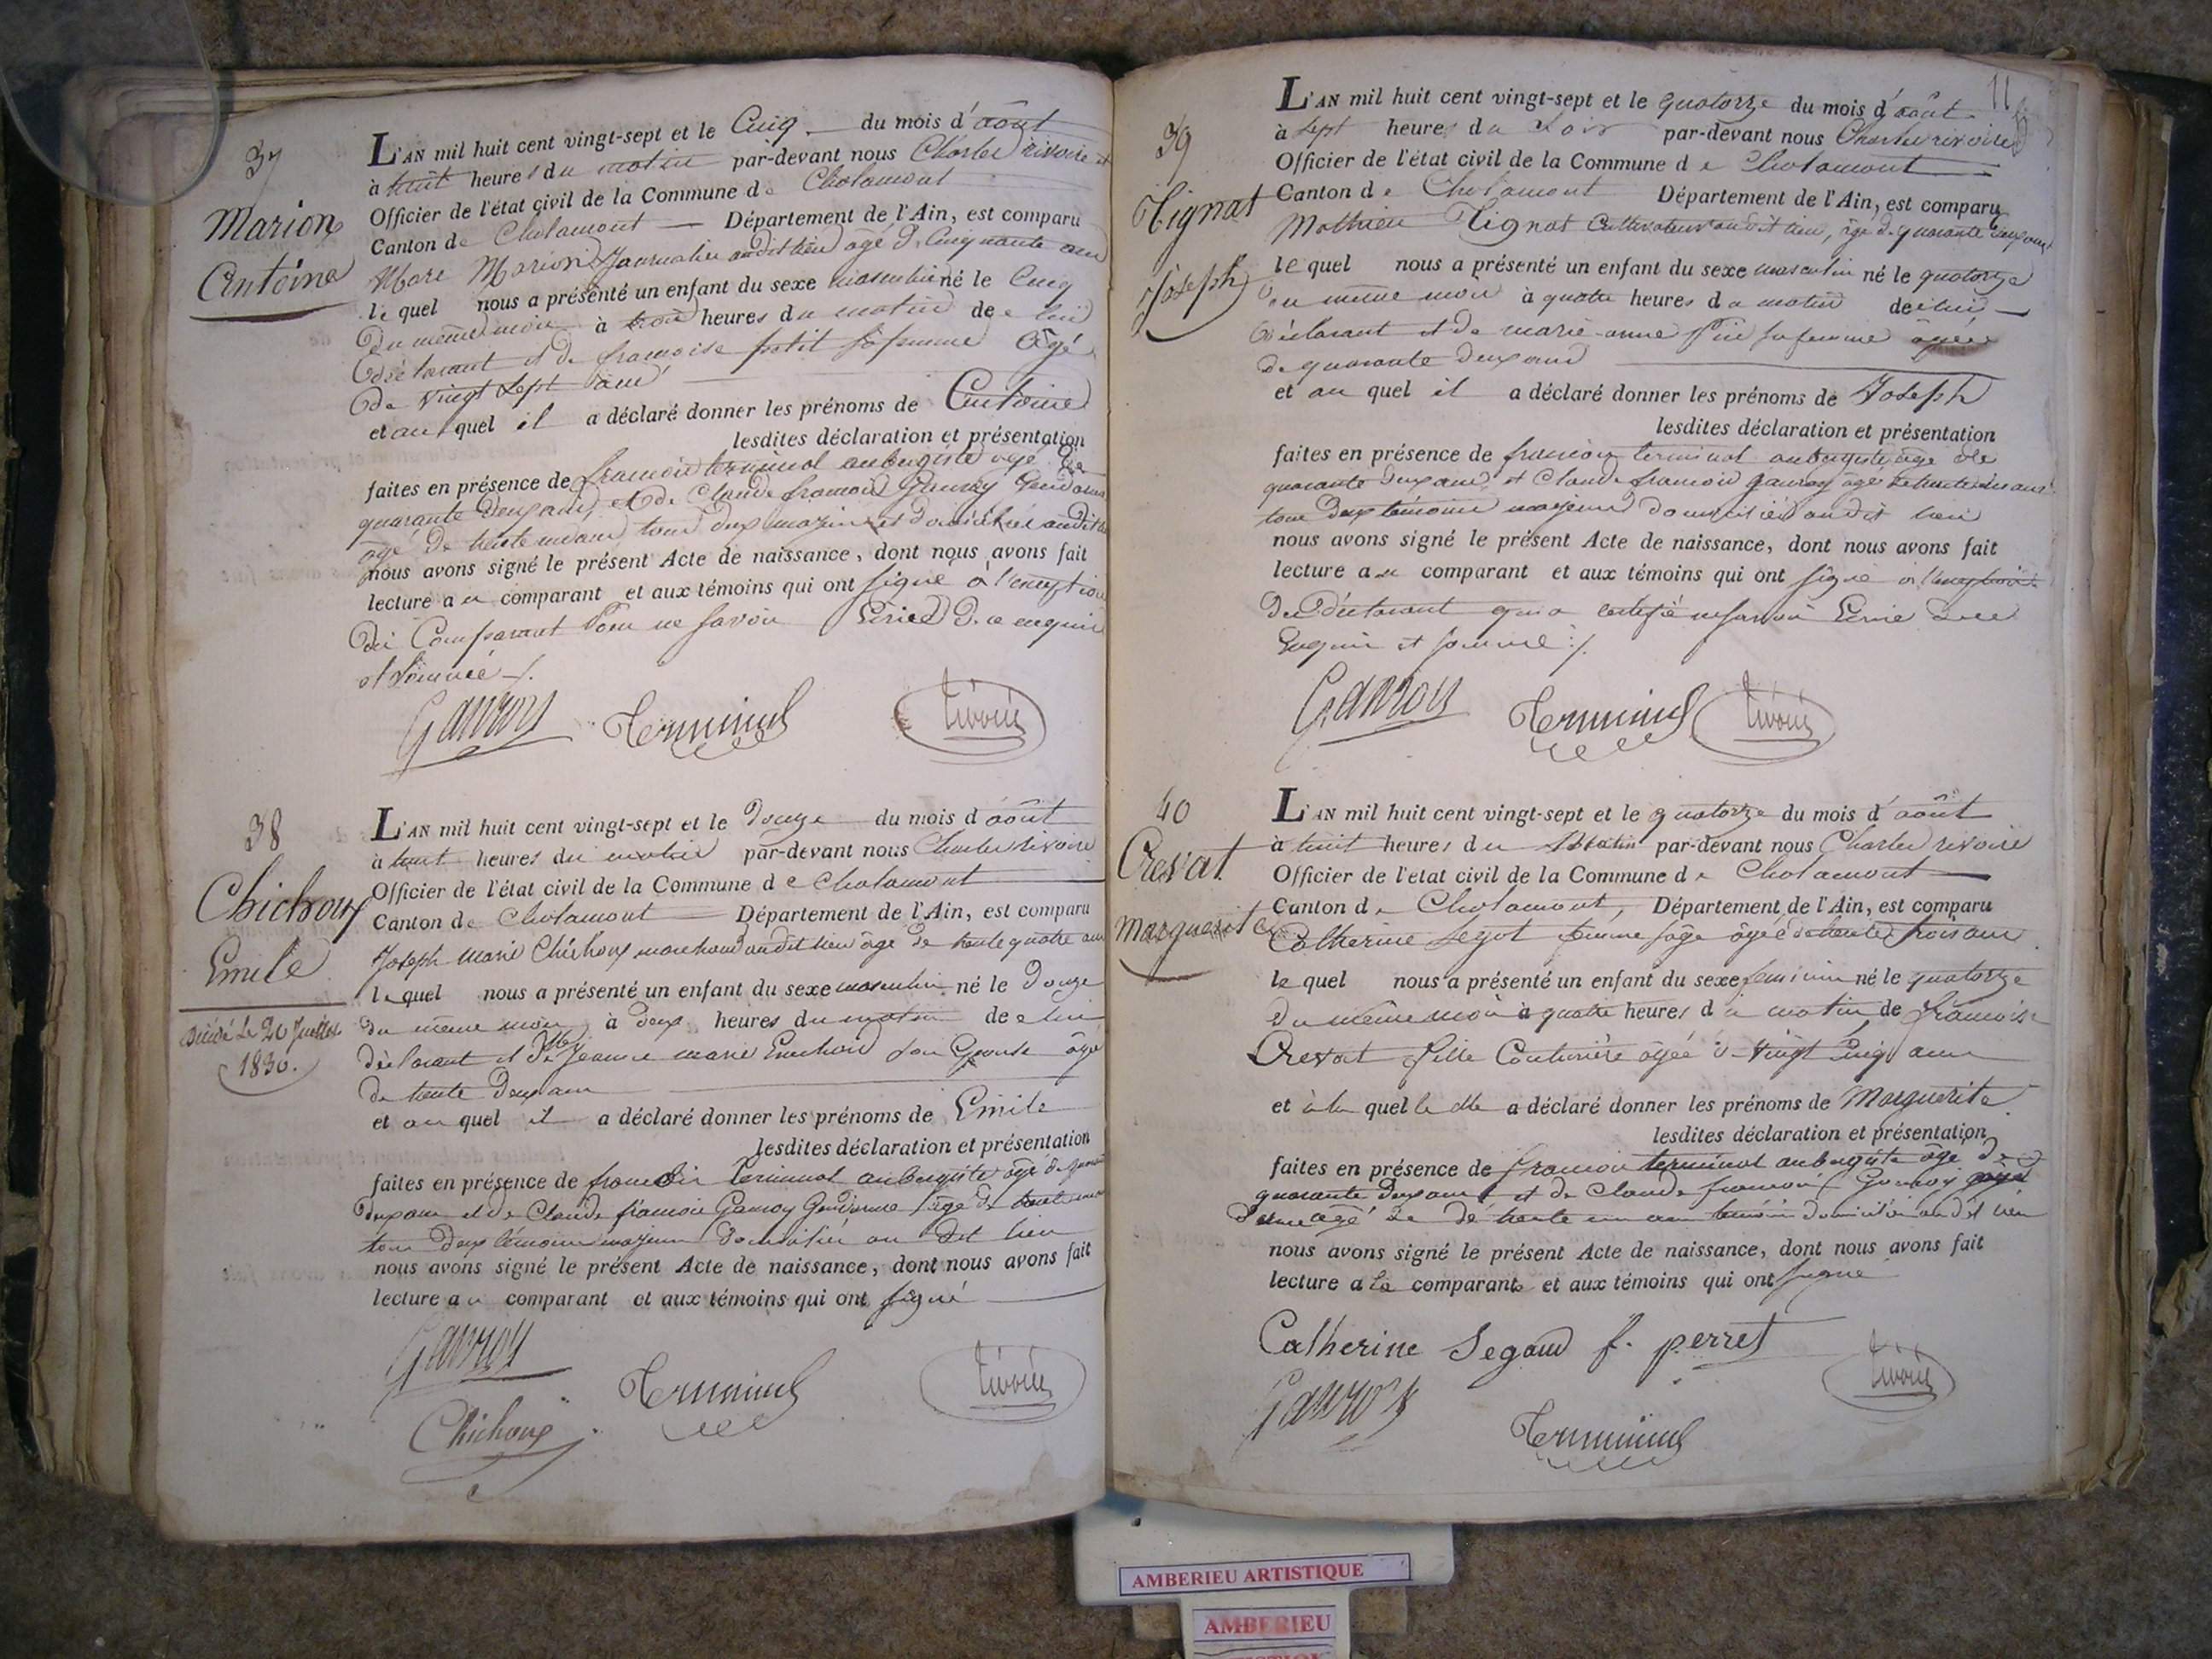 37
Marion
Antoine
L'AN mil huit cent vingt-sept et le Cinq du mois d'août
à huit heures du matin par-devant nous Charles rivoire
Officier de l'état civil de la Commune de Chalamont
Canton de Chalamont Département de l'Ain, est comparu
Marion Journalier audit lieu âgé de Cinquante ans
lequel nous a présenté un enfant du sexe masculin né le Cinq
Du même mois à trois heures du matin de lui
Déclarant et de françoise petit sa femme âgée
De vingt sept ans
et au quel il a déclaré donner les prénoms de Antoine
lesdites déclaration et présentation
faites en présence de françois terminal aubergiste âgé de
quarante deux ans, et de Claude françois Gauroy Gendarme
âgé De trente un ans tous deux majeurs et domiciliés audit lieu
nous avons signé le présent Acte de naissance, dont nous avons fait
lecture au comparant et aux témoins qui ont signé à l'exception
Du Comparant Pour ne savoir Ecrire D. ce enquis
et sommé ./.
Gauroy Terminal rivoire
38
Chichoux
Emile
Décédé Le 20 Juillet
1830.
L'AN mil huit cent vingt-sept et le Douze du mois d'août
à huit heures du matin par-devant nous Charles rivoire
Officier de l'état civil de la Commune de Chalamont
Canton de Chalamont Département de l'Ain, est comparu
Joseph marie Chichoux marchand audit lieu âgé de trente quatre ans
lequel nous a présenté un enfant du sexe masculin né le Douze
du même mois à deux heures du matin de lui
déclarant et de Jeanne marie son Epouse âgée
de trente Deux ans
et au quel il a déclaré donner les prénoms de Emile
lesdites déclaration et présentation
faites en présence de françois terminal aubergiste âgé de quarante
Deux ans et de Claude françois Gauroy Gendarme âgé de trente un ans
tous deux témoins majeurs domiciliés au dit lieu
nous avons signé le présent Acte de naissance, dont nous avons fait
lecture au comparant et aux témoins qui ont signé
Gauroy
Chichoux
Terminal
rivoire
11
39
Tignat
Joseph
L'AN mil huit cent vingt-sept et le quatorze du mois d'août
à sept heures du soir par-devant nous Charles rivoire
Officier de l'état civil de la Commune de Chalamont
Canton de Chalamont Département de l'Ain, est comparu
Mathieu Tignat Cultivateur audit lieu, âgé de quarante deux ans
lequel nous a présenté un enfant du sexe masculin né le quatorze
du même mois à quatre heures du matin de lui
Déclarant et de marie-anne sa femme âgée
de quarante deux ans
et au quel il a déclaré donner les prénoms de Joseph
lesdites déclaration et présentation
faites en présence de françois terminal aubergiste âgé de
quarante deux ans et Claude françois gauroy âgé de trente un ans
tous deux témoins majeurs domiciliés audit lieu
nous avons signé le présent Acte de naissance, dont nous avons fait
lecture au comparant et aux témoins qui ont signé à l'exception
Du Déclarant qui a certifié ne savoir Ecrire de ce
Enquis et sommé ./.
Gauroy Terminal rivoire
40
Crevat
Marguerite
L'AN mil huit cent vingt-sept et le quatorze du mois d'août
à huit heures du Matin par-devant nous Charles rivoire
Officier de l'état civil de la Commune de Chalamont
Canton de Chalamont, Département de l'Ain, est comparu
Catherine Segot femme sage âgée de trente trois ans
lequel nous a présenté un enfant du sexe féminin né le quatorze
du même mois à quatre heures du matin de françoise
Crevat fille Couturière âgée de vingt Cinq ans
et à la quelle elle a déclaré donner les prénoms de Marguerite
lesdites déclaration et présentation
faites en présence de françois terminal aubergiste âgé de
quarante deux ans et de Claude françois Gauroy
âgé de trente un ans témoins domiciliés audit lieu
nous avons signé le présent Acte de naissance, dont nous avons fait
lecture à la comparante et aux témoins qui ont signé
Catherine Segaud f. perret
Gauroy
Terminal
rivoire
AMBERIEU ARTISTIQUE
AMBERIEU